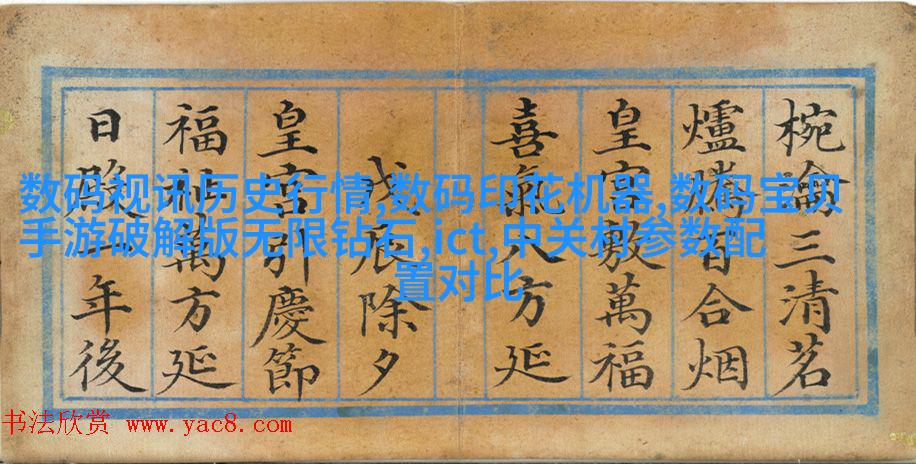 椀瀹三清茗
爐騰百合烟
皇宮敷萬福
喜氣八方延
戊辰除夕
皇宮引慶節
福祉萬方延
日年後
数码视讯历史行情,数码印花机器,数码宝贝
手游破解版无限钻石,ict,中关村参数配
置对比
书法欣赏 www.yac8.com